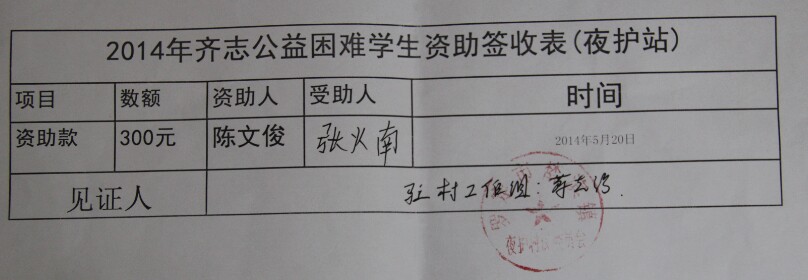 2014年齐志公益困难学生资助签收表(夜护站)
项目 数额 资助人 受助人 时间
资助款 300元 陈文俊 张火南 2014年5月20日
见证人 驻村工作组:
夜护村